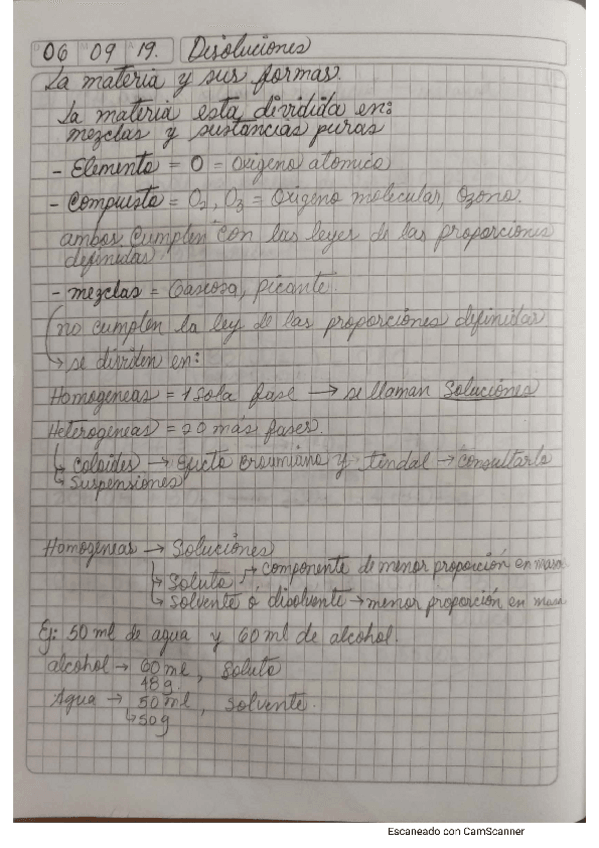 06 09 19. Disoluciones
La materia y sus formas.
La materia esta dividida en:
mezclas y sustancias puras
- Elemento = O = Oxigeno atomico
- Compuesto = O2, O3 = Oxigeno molecular, Ozono.
ambos cumplen con las leyes de las proporciones
definidas
- mezclas = Gaseosa, picante.
no cumplen la ley de las proporciones definidas
→ se dividen en:
Homogeneas = 1 sola fase → se llaman Soluciones
Heterogeneas = 2 o más fases.
↳ Coloides → Efecto Browniano y tindal → Consultarlo
↳ Suspensiones
Homogeneas → Soluciones
↳ Soluto → componente de menor proporción en masa
↳ Solvente ó disolvente → menor proporción en masa
Ej: 50 ml de agua y 60 ml de alcohol.
alcohol → 60 ml, soluto
48 g.
Agua → 50 ml, solvente.
↳ 50 g
Escaneado con CamScanner